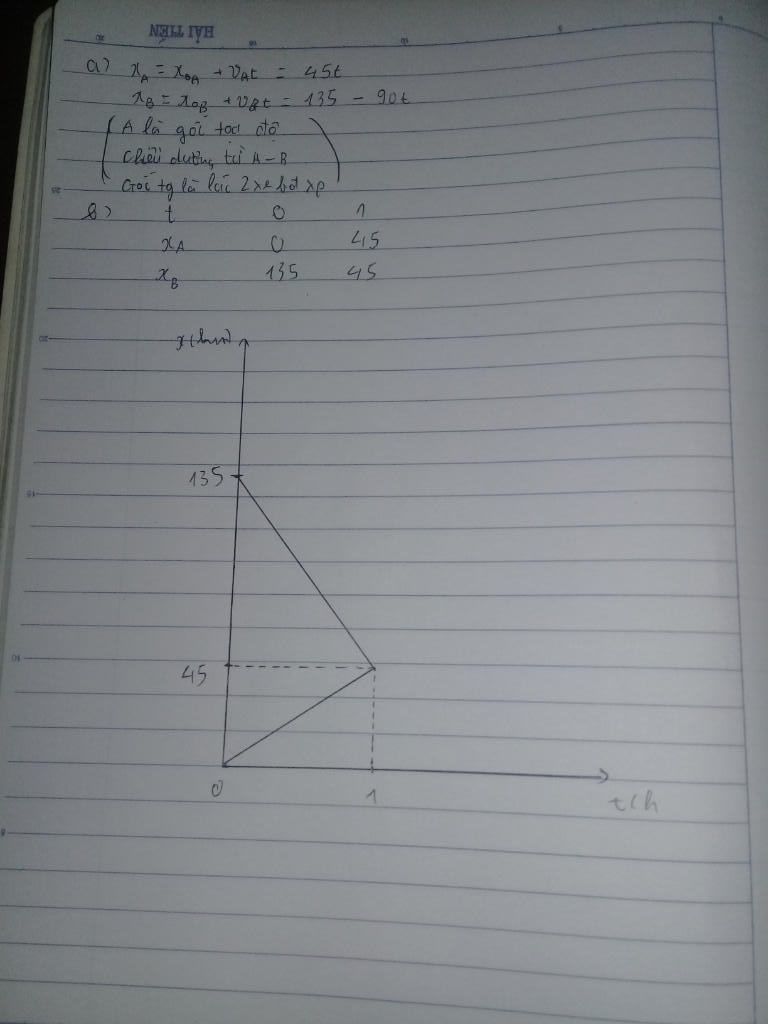 HẢI TIẾN
a) x_A = x_0A + v_A t = 45t
x_B = x_0B + v_B t = 135 - 90t
(A là gốc toạ độ
Chiều dương từ A - B
Gốc tg là lúc 2 xe bắt xp)
b) t 0 1
x_A 0 45
x_B 135 45
x(km)
135
45
0 1 t(h